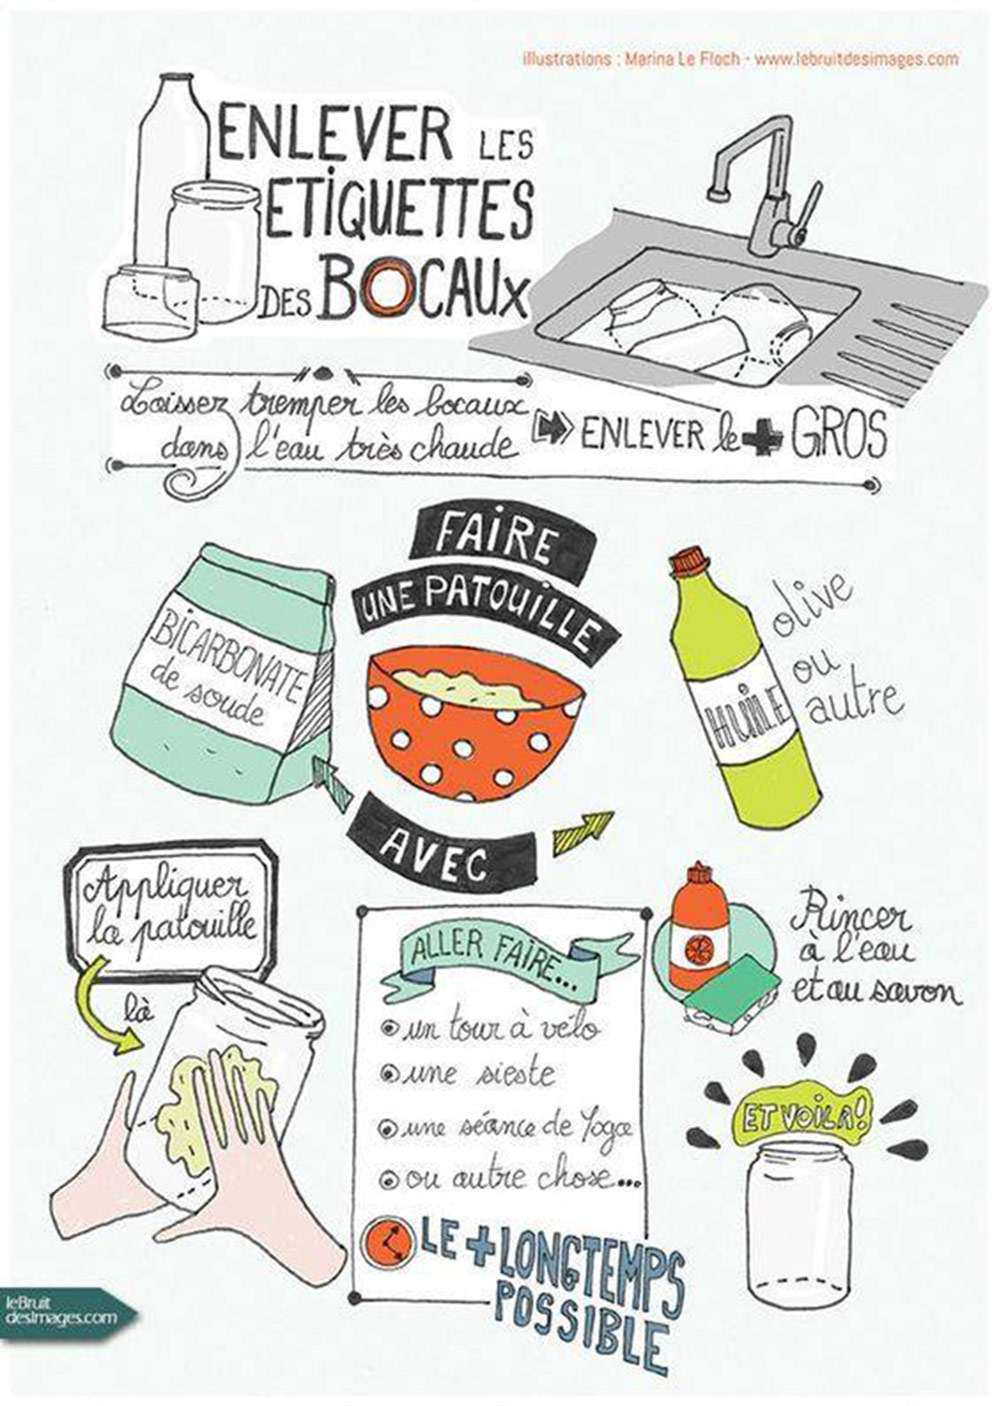 illustrations : Marina Le Floch - www.lebruitdesimages.com
ENLEVER LES
ETIQUETTES
DES BOCAUX
Laissez tremper les bocaux
dans l'eau très chaude
ENLEVER le + GROS
FAIRE
UNE PATOUILLE
BICARBONATE
de soude
HUILE
olive
ou
autre
AVEC
Appliquer
la patouille
là
ALLER FAIRE...
un tour à vélo
une sieste
une séance de Yoga
ou autre chose...
LE + LONGTEMPS
POSSIBLE
Rincer
à l'eau
et au savon
ET VOILA!
leBruit
desImages.com